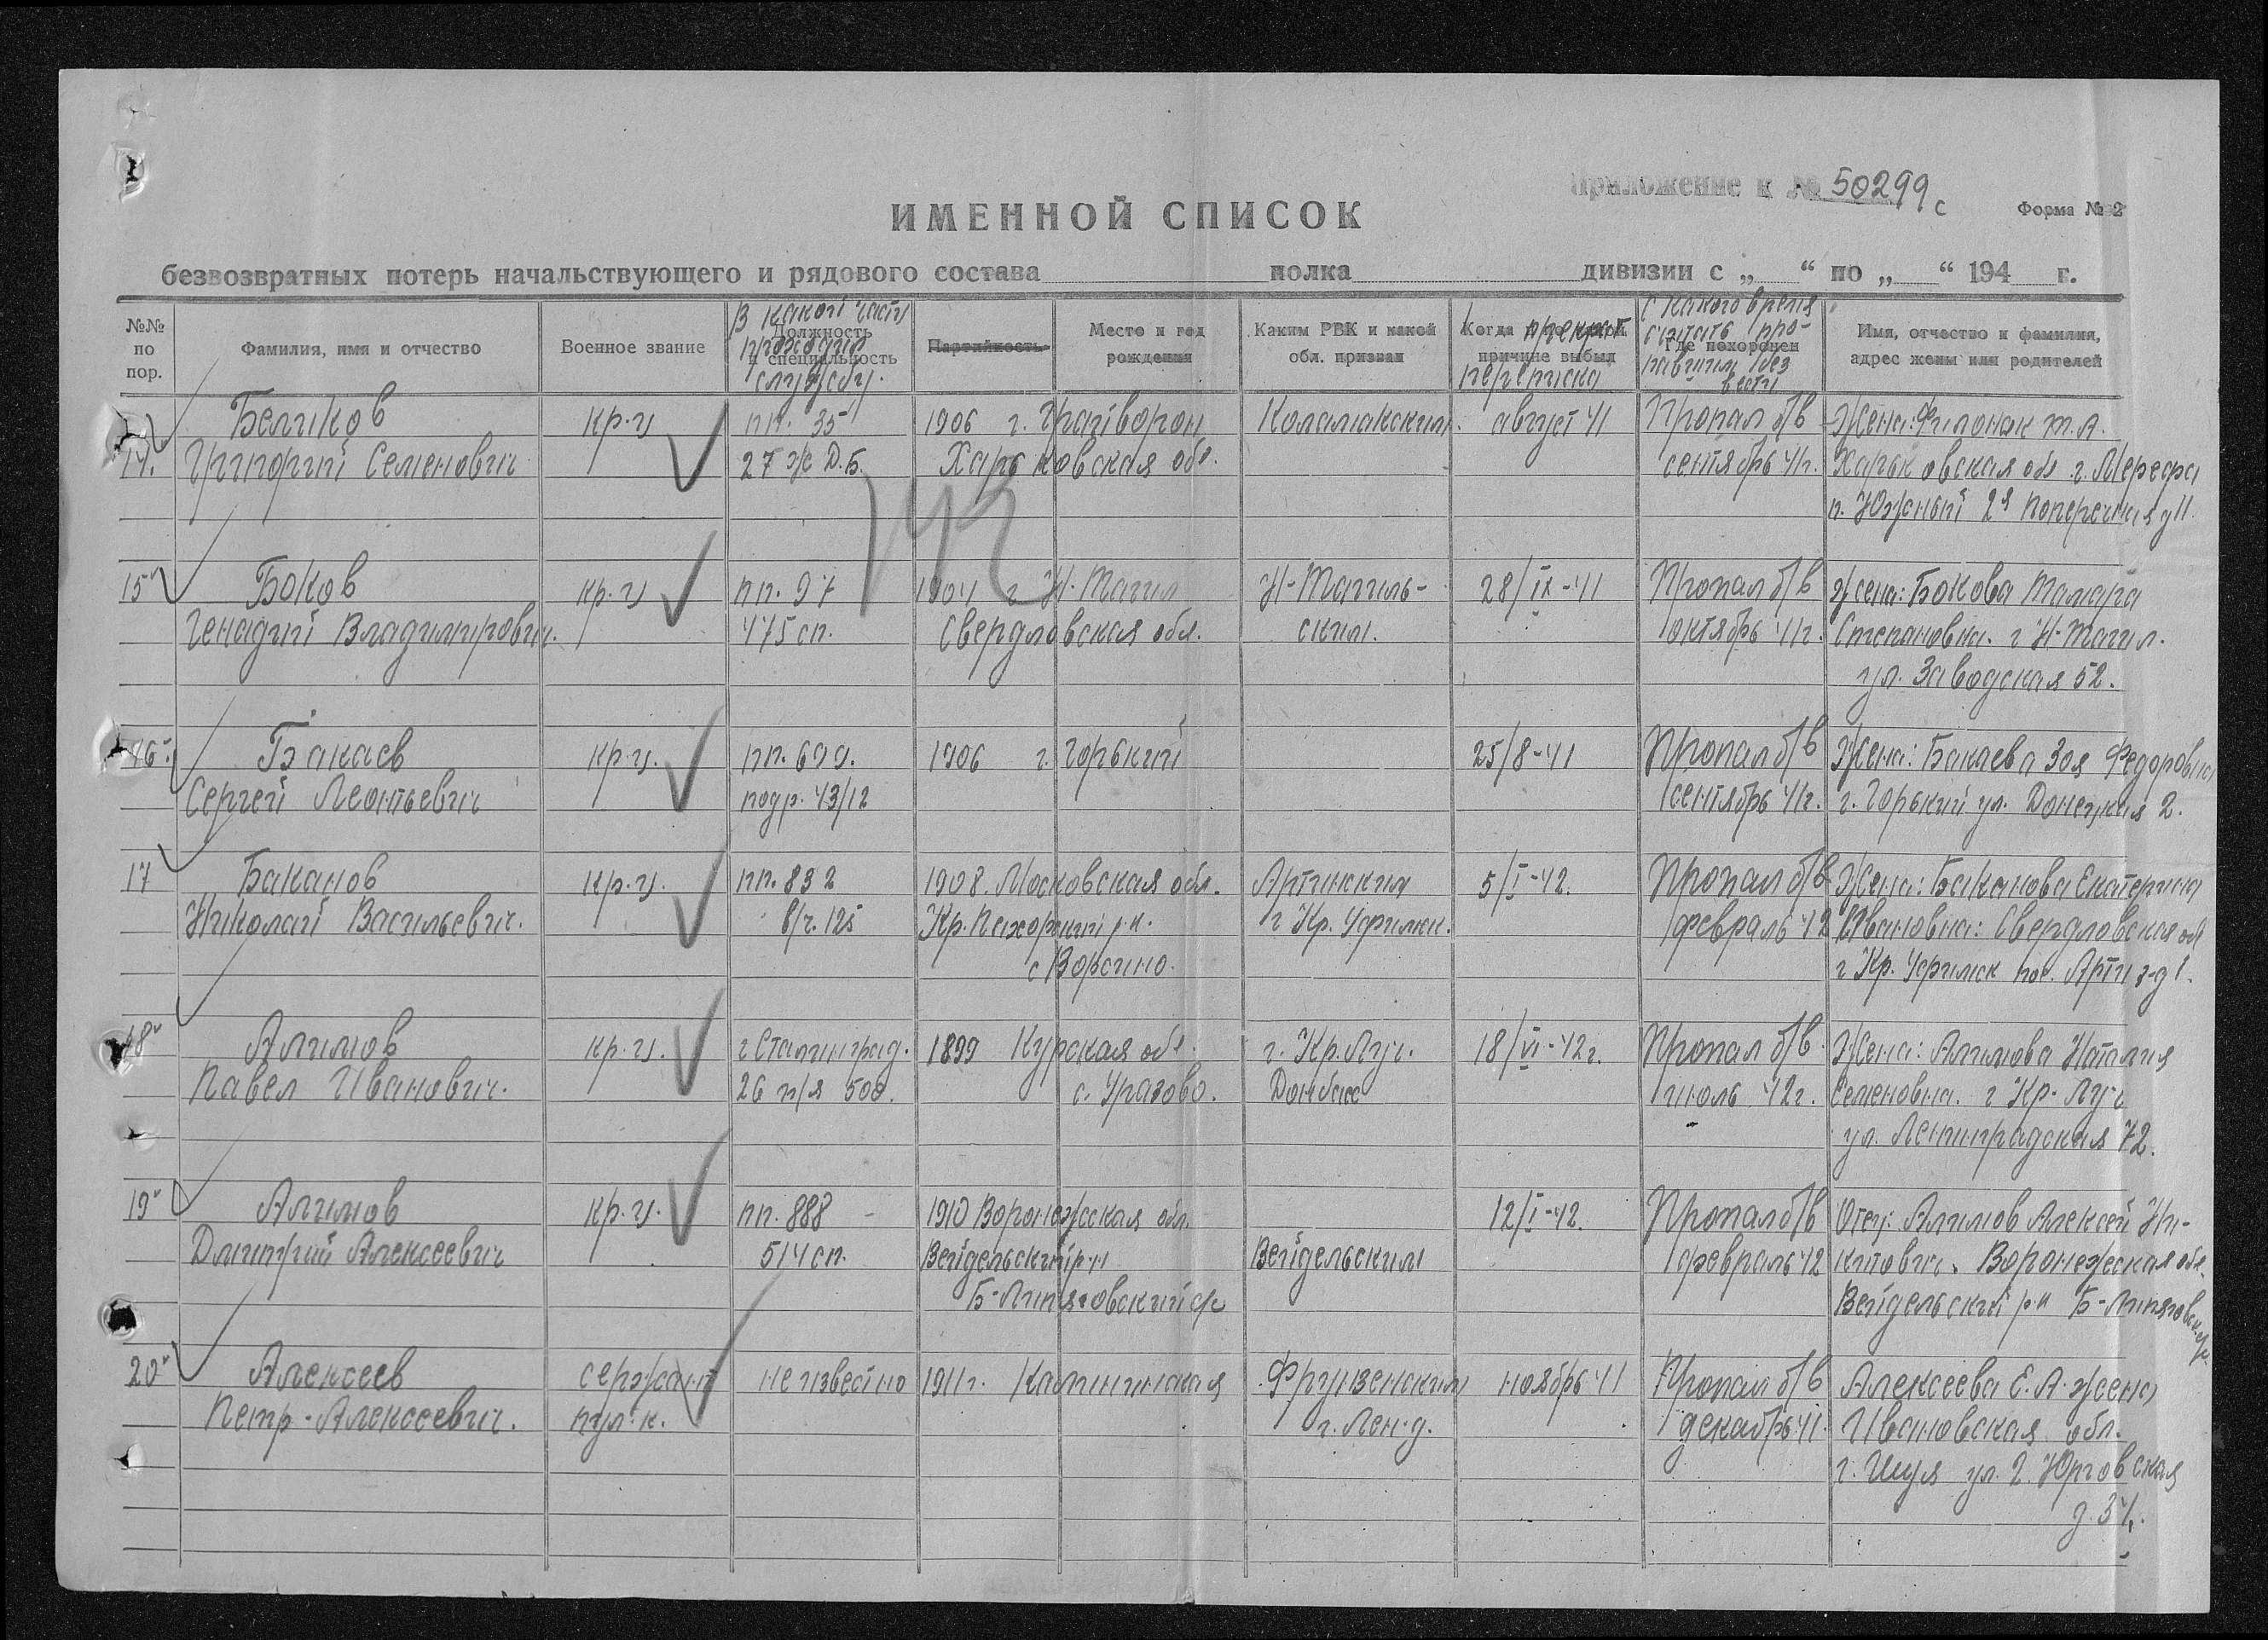 Приложение к № 50299с
Форма № 2
ИМЕННОЙ СПИСОК
безвозвратных потерь начальствующего и рядового состава полка дивизии с „ “ по „ “ 194 г.
№№ по пор.
Фамилия, имя и отчество
Военное звание
Должность и специальность
В какой части проходил службу.
Партийность
Место и год рождения
Каким РВК и какой обл. призван
Когда и по какой причине выбыл
прекрат. переписка
Где похоронен
с какого время считать пропавшим без вести
Имя, отчество и фамилия, адрес жены или родителей
14. Беликов кр-ц пп. 35 1906 г. Грайворон Коламакским август 41 Пропал б/в Жена: Филонак т.А.
Григорий Семенович 27 ж Д.Б. Харьковская обл. сентябрь 41г. Харьковская обл г. Мерефа
п. Южный 2я поперечная д 11
143
15 Боков кр-ц пп. 97 1904 г Н-Тагил Н-Тагиль- 28/IX-41 Пропал б/в Жена: Бокова Тамара
Генадий Владимирович. 475 сп. Свердловская обл. ским. октябрь 41г. Степановна. г Н-Тагил.
ул. Заводская 52.
16 Бакаев кр-ц. пп. 699. 1906 г. Горький 25/8-41 Пропал б/в Жена: Бакаева Зоя Федоровна
Сергей Леонтьевич подр. 43/12 сентябрь 41г. г. Горький ул. Донецкая 2.
17 Баканов кр-ц. пп. 832 1908. Московская обл. Артинким 5/I-42. Пропал б/в Жена: Баканова Екатерина
Николай Васильевич. в/ч. 125 Кр. Пахорский р-н. г Кр. Уфимск. февраль 42 Ивановна: Свердловская об
с Ворсино. г Кр. Уфимск пос. Арти з-д 1.
18 Алимов кр-ц. г Сталинград. 1899 Курская обл. г. Кр. Луч. 18/VI-42г. Пропал б/в. Жена: Алимова Наталия
Павел Иванович. 26 п/я 500. с. Уразово. Донбасс июль 42г. Семеновна. г Кр-Луч
ул. Ленинградская 72.
19 Алимов кр-ц. пп. 888 1910 Воронежская обл. 12/I-42. Пропал б/в Отец: Алимов Алексей Ни-
Дмитрий Алексеевич 514 сп. Вейдельский р-н Вейдельским февраль 42 китович. Воронежская обл.
Б-Липяговский с/с Вейдельский р-н Б-Липяговск. с/с.
20 Алексеев сержант неизвестно 1911г. Калининская Фрунзенским ноябрь 41 Пропал б/в Алексеева Е.А. жена
Петр Алексеевич. пул. к. г. Лен-д. декабрь 41. Ивановская обл.
г. Шуя ул. 2. Юрговская
д. 34.